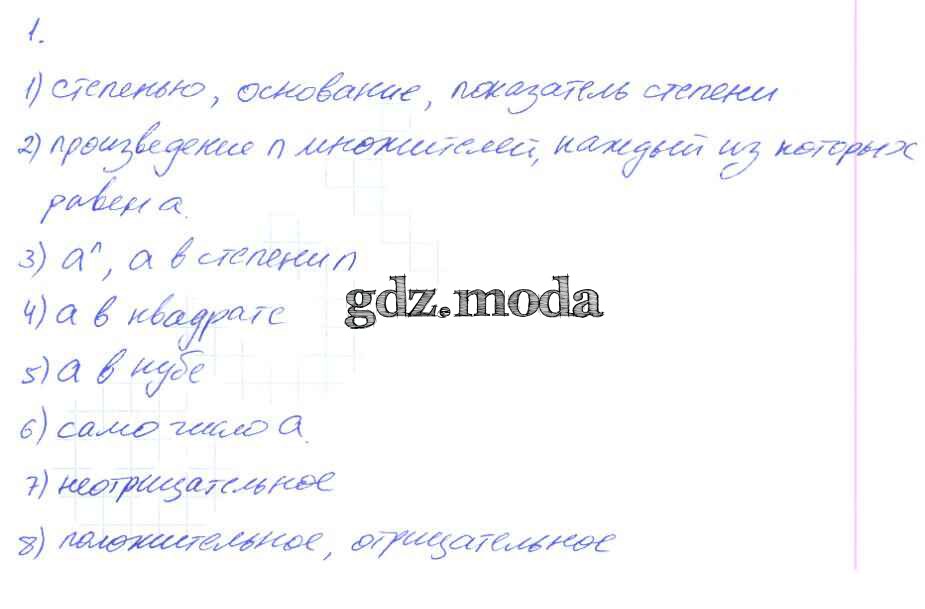 1.
1) степенью, основание, показатель степени
2) произведение n множителей, каждый из которых
равен a.
3) aⁿ, a в степени n
gdz.moda
4) a в квадрате
5) a в кубе
6) само число a.
7) неотрицательное
8) положительное, отрицательное